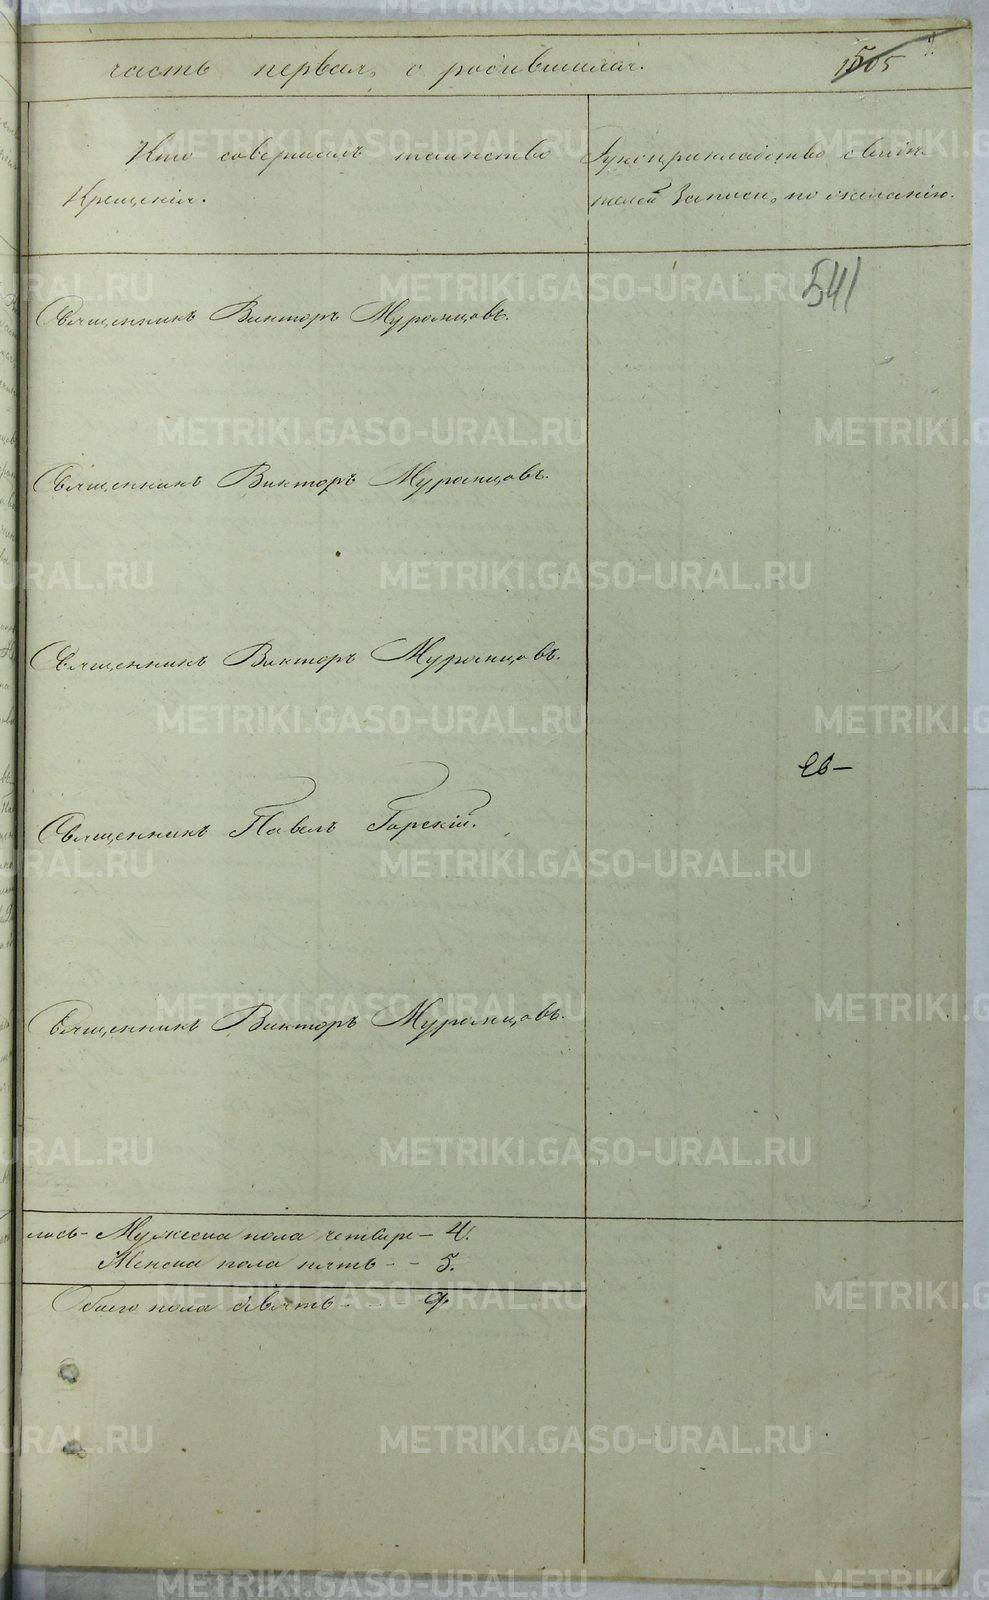 часть первая, о родившихся.
1505
Кто совершалъ таинство
Крещенія.
Рукоприкладство свидѣ-
телей записи, по желанію.
541
Священникъ Викторъ Муранцовъ.
Священникъ Викторъ Муранцовъ.
Священникъ Викторъ Муранцовъ.
Священникъ Павелъ Горскій.
Священникъ Викторъ Муранцовъ.
лось - Мужеска пола четыре - 4.
Женска пола пять - - 5.
Обоего пола девять - - 9.
METRIKI.GASO-URAL.RU